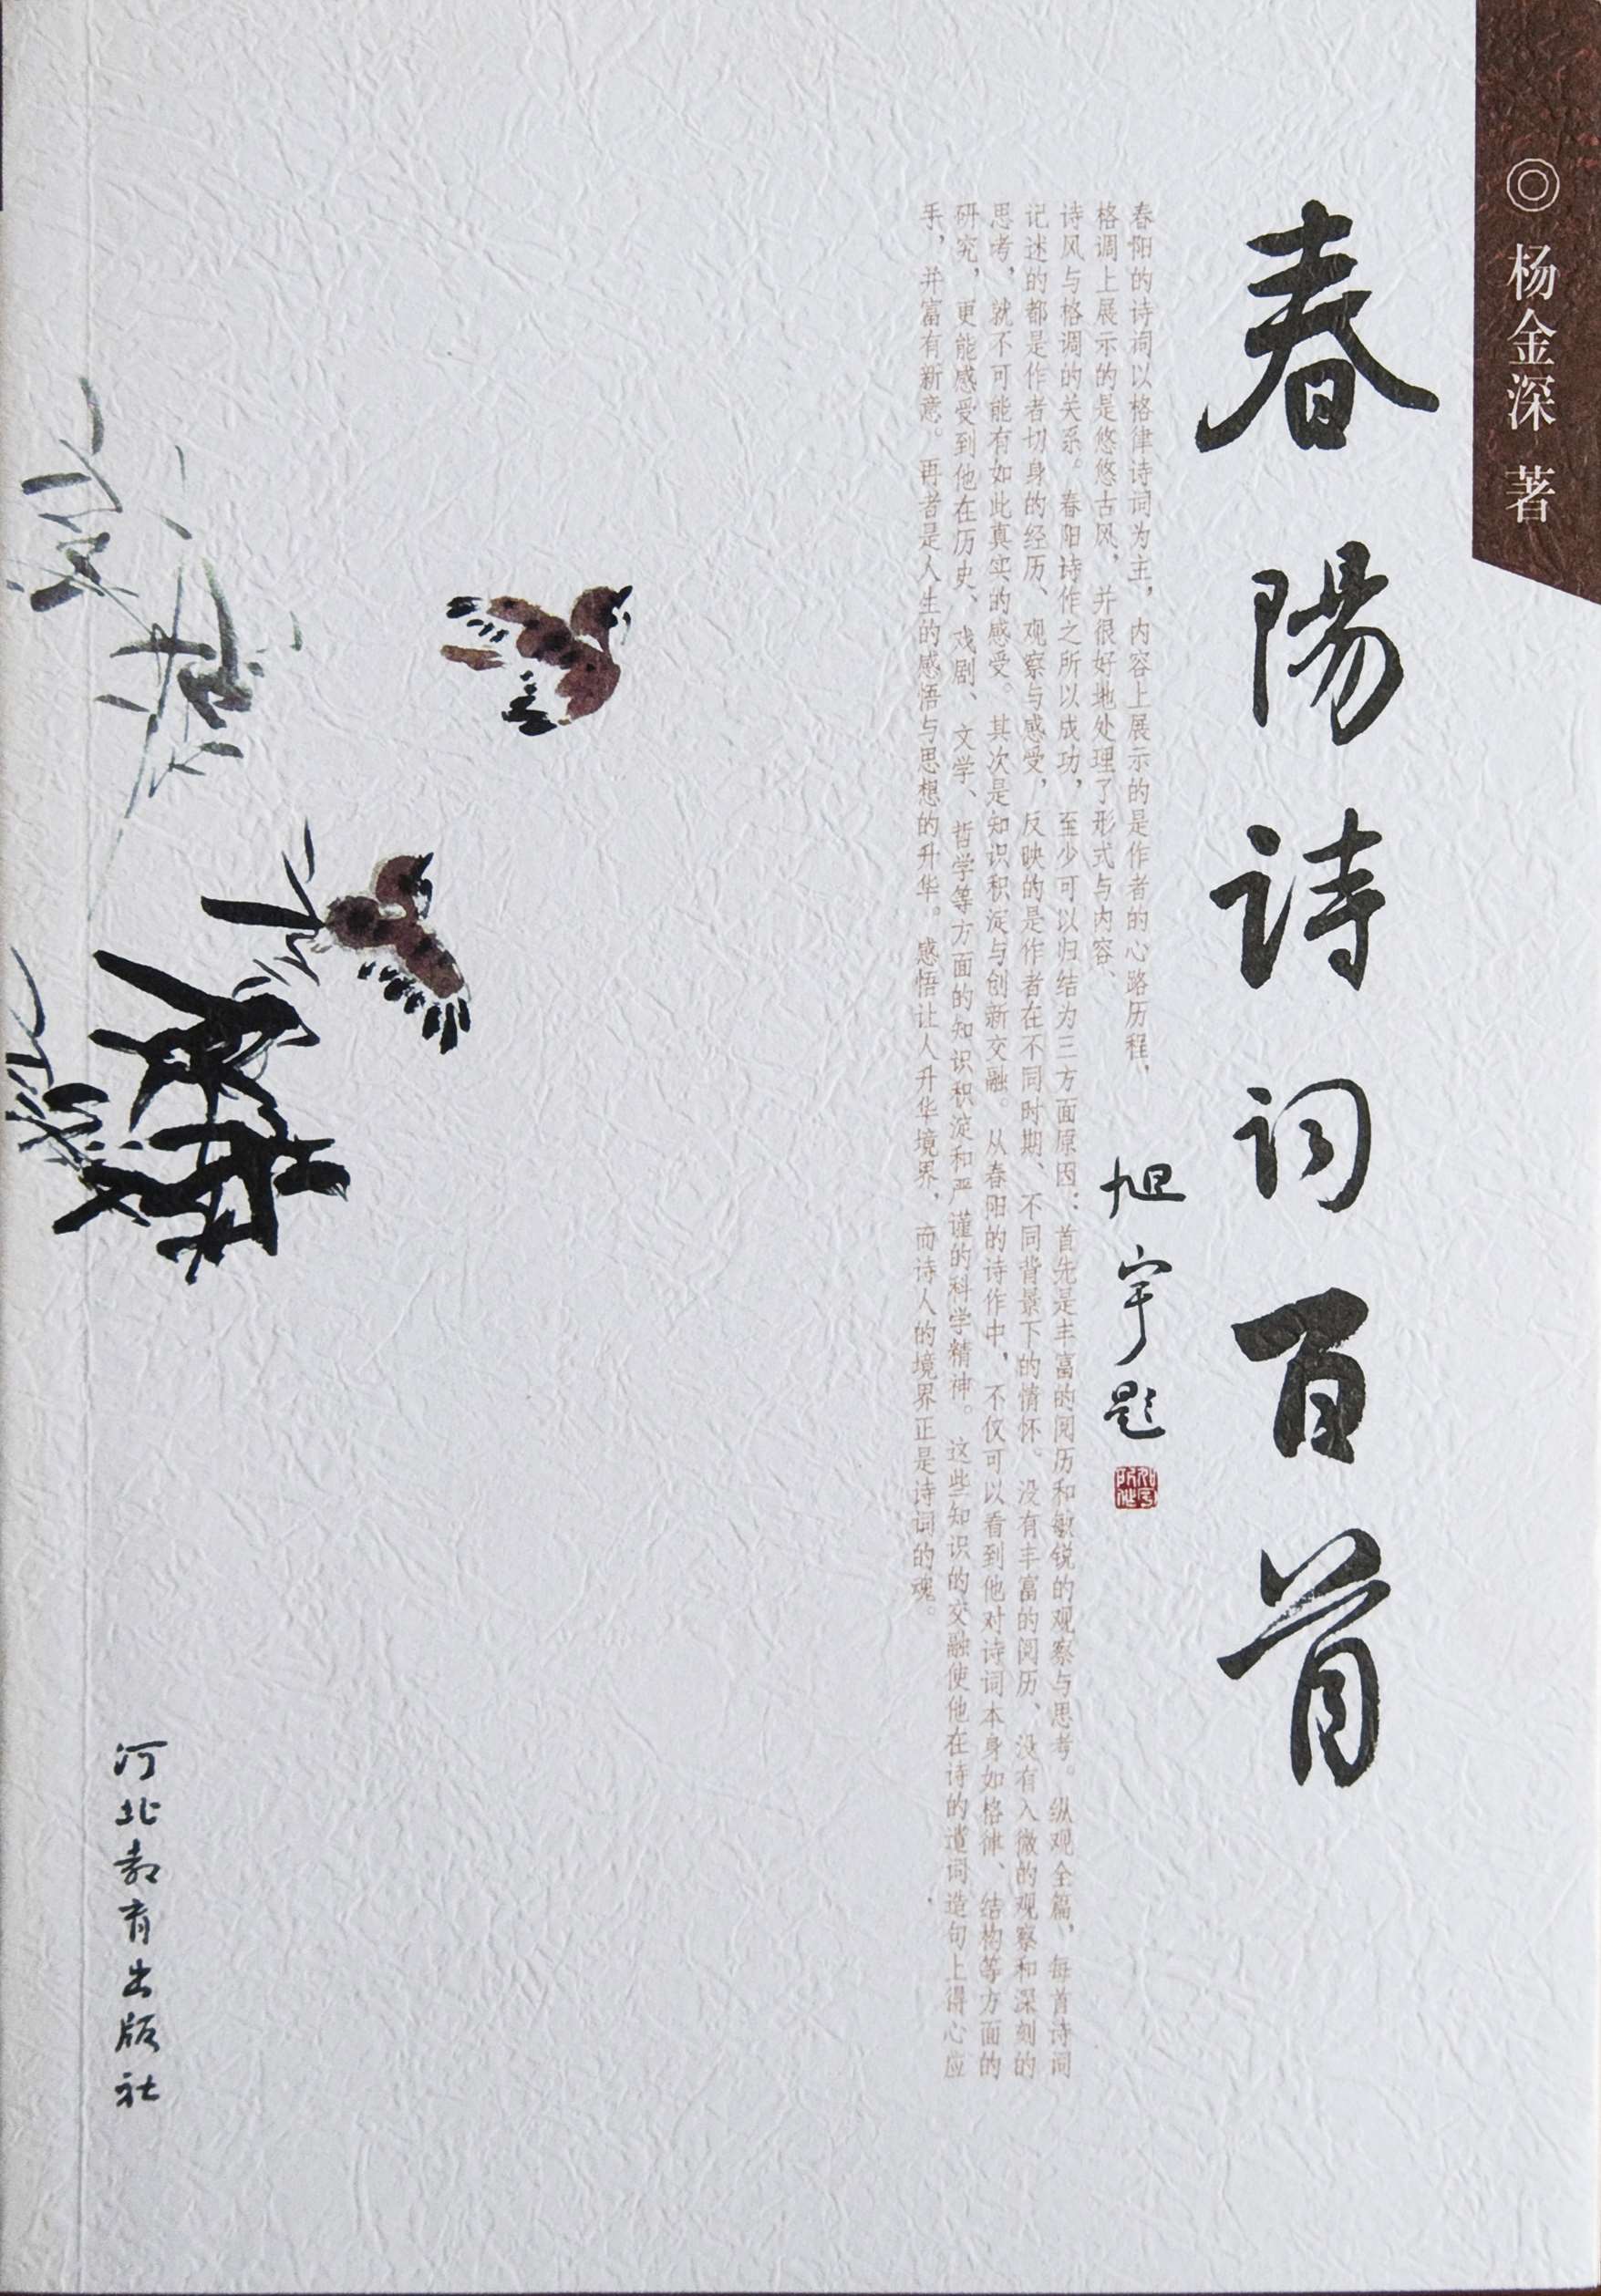 ◎杨金深 著
春陽诗词百首
旭宇题
春阳的诗词以格律诗词为主，内容上展示的是作者的心路历程、
格调上展示的是悠悠古风、并很好地处理了形式与内容、
诗风与格调的关系。春阳诗作之所以成功，至少可以归结为三方面原因：首先是丰富的阅历和敏锐的观察与思考。纵观全篇，每首诗词
记述的都是作者切身的经历、观察与感受，反映的是作者在不同时期、不同背景下的情怀。没有丰富的阅历、没有入微的观察和深刻的
思考，就不可能有如此真实的感受。其次是知识积淀与创新交融。从春阳的诗作中，不仅可以看到他对诗词本身如格律、结构等方面的
研究，更能感受到他在历史、戏剧、文学、哲学等方面的知识积淀和严谨的科学精神。这些知识的交融使他在诗的遣词造句上得心应
手，并富有新意。再者是人生的感悟与思想的升华。感悟让人升华境界，而诗人的境界正是诗词的魂。
河北教育出版社